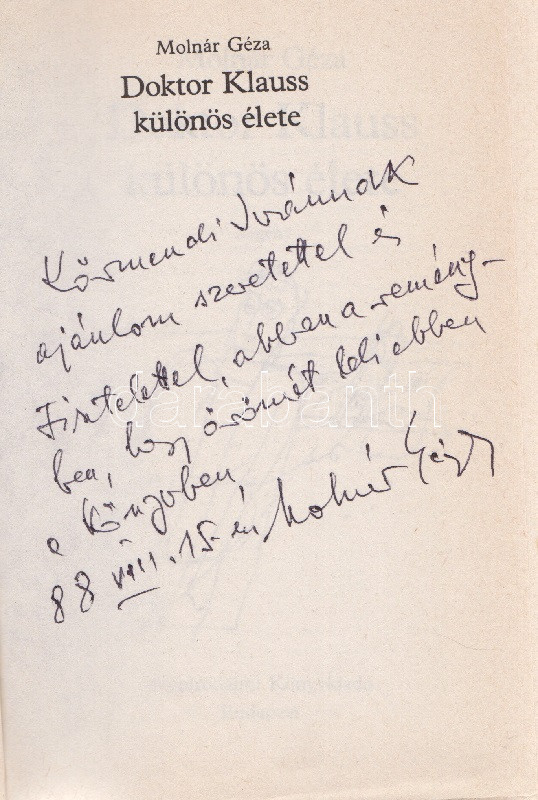 Molnár Géza
Doktor Klauss
különös élete
Körmendi Ivánnak
ajánlom szeretettel és
tisztelettel, abban a remény-
ben, hogy örömét leli ebben
a könyvben
88 VIII. 15-én Molnár Géza
darabanth